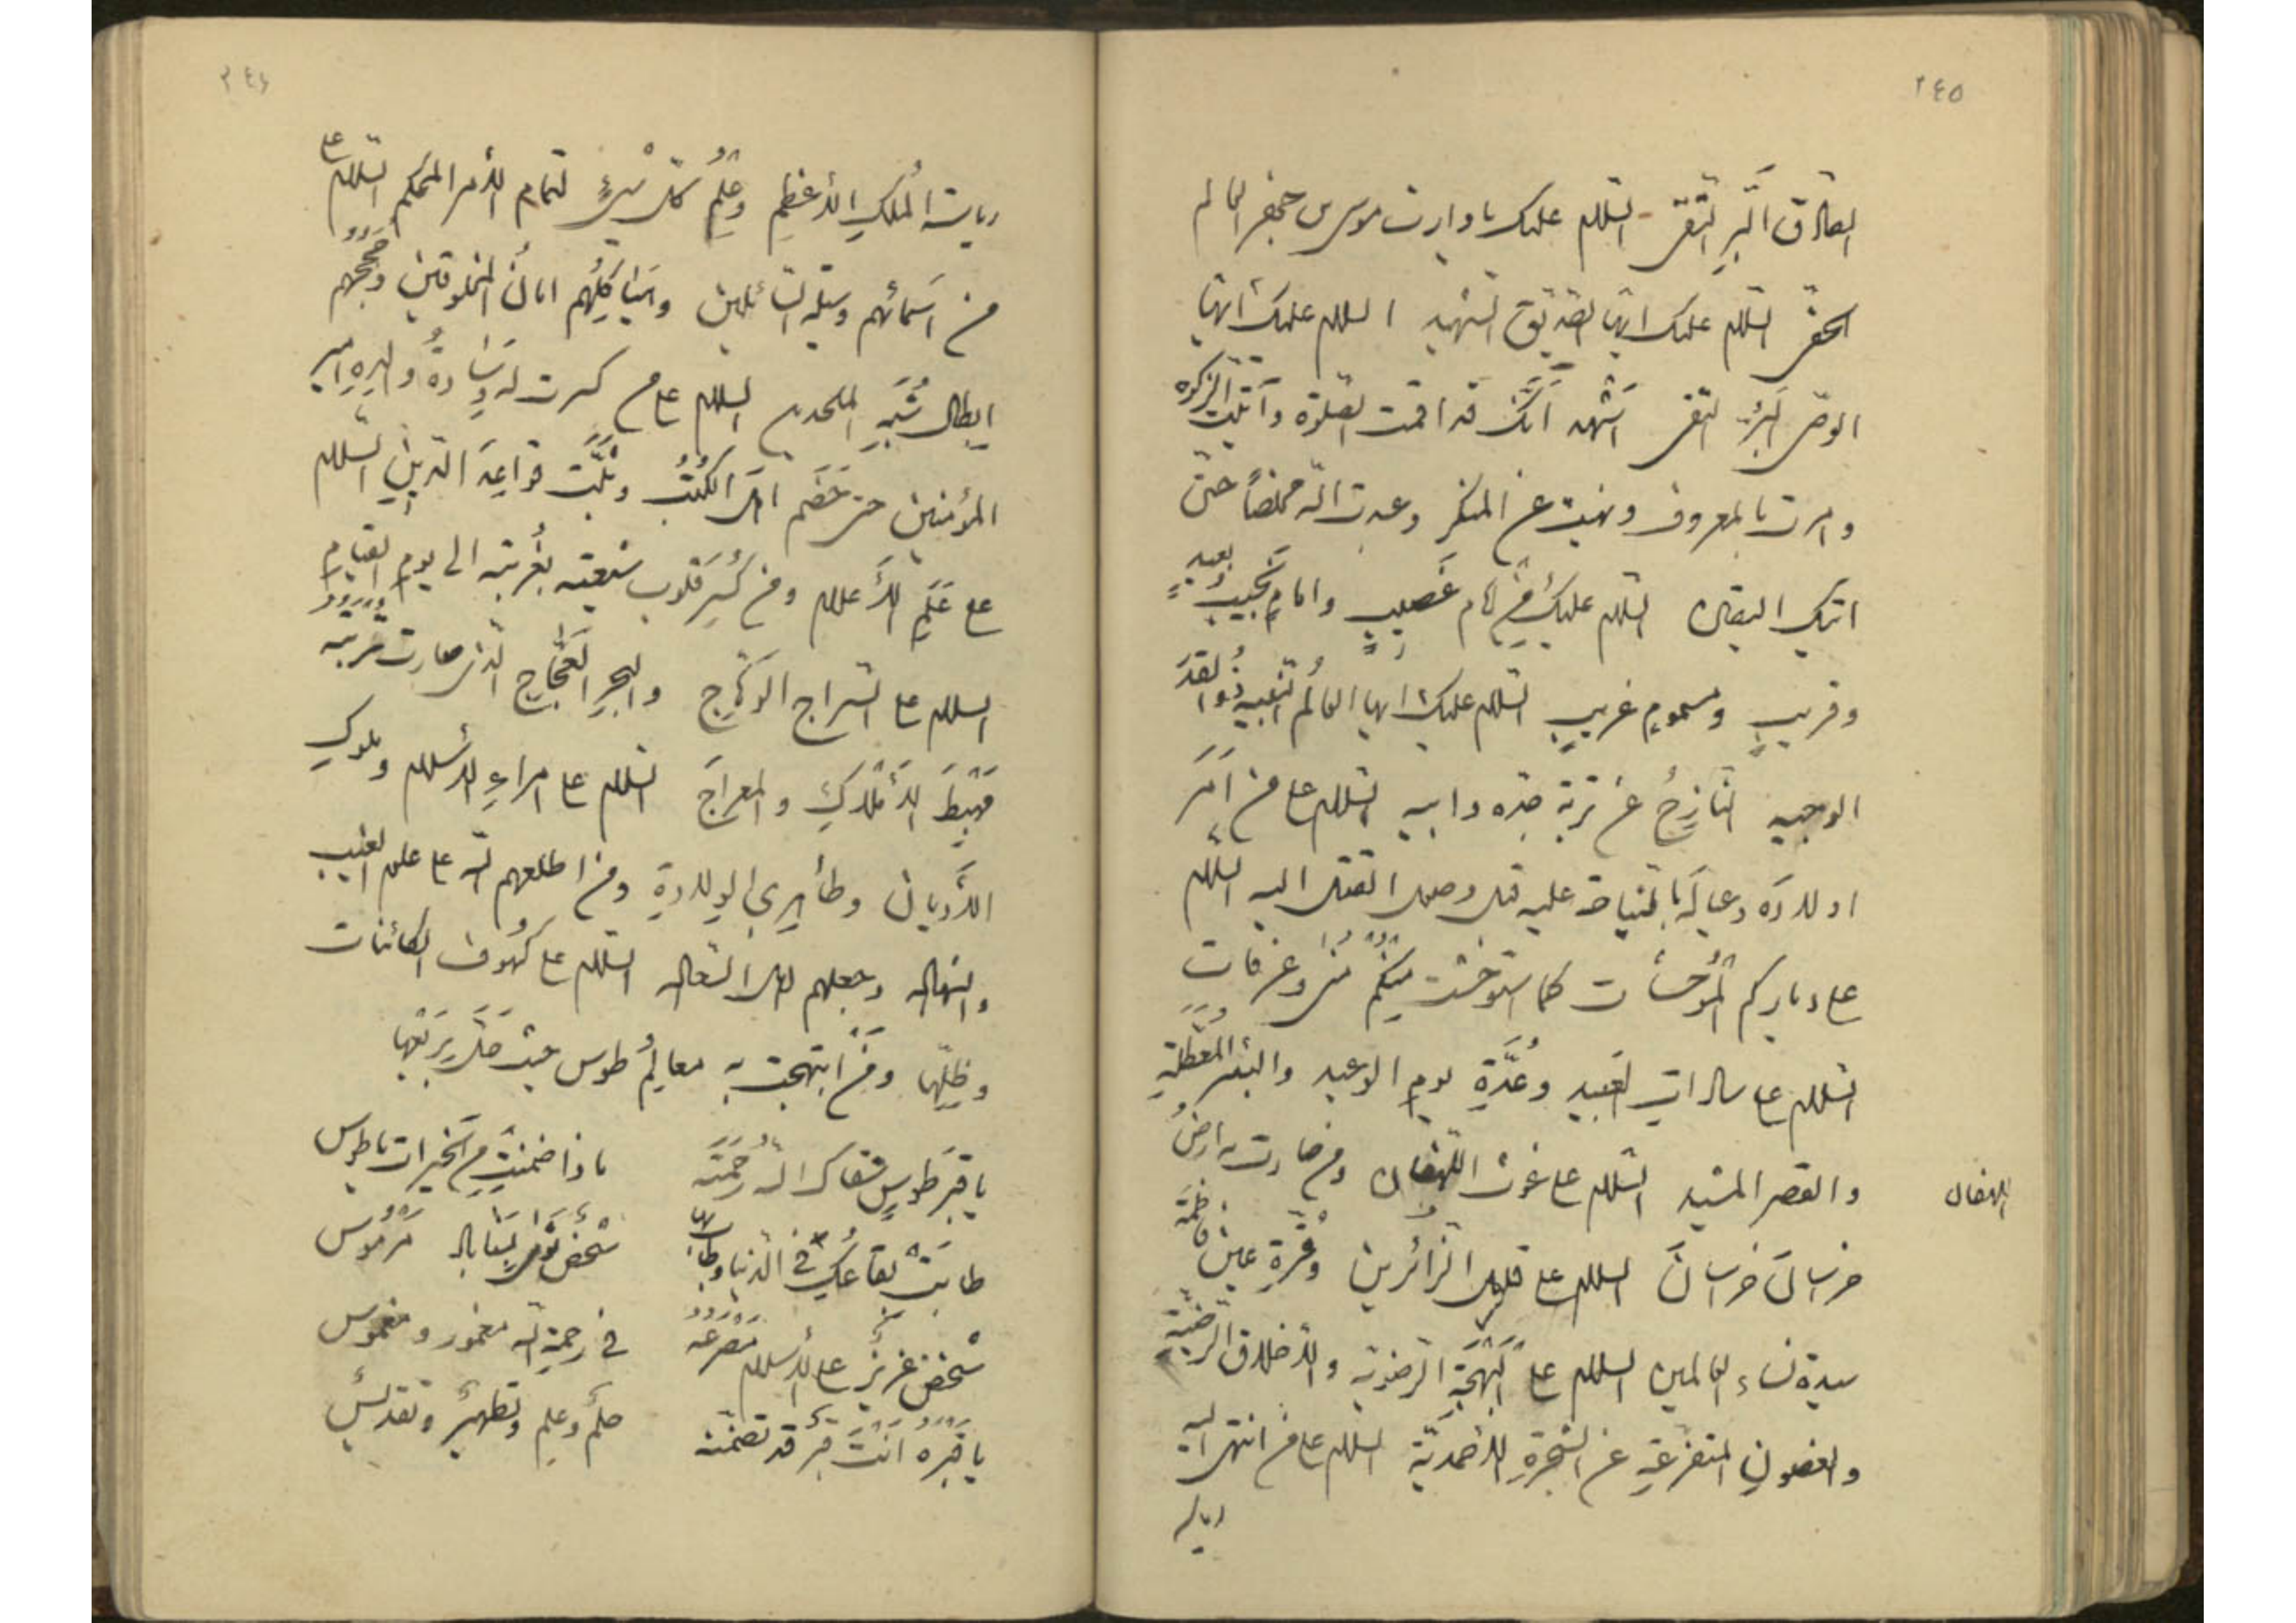 ٢٤٥
الصادق البر التقی السلام علیک یا وارث موسی بن جعفر العالم
الحفی السلام علیک ایها الصدیق الشهید السلام علیک ایها
الوصی البر التقی اشهد انک قد اقمت الصلوة وآتیت الزکوة
وامرت بالمعروف ونهیت عن المنکر وعبدت الله مخلصاً حتی
اتیک الیقین السلام علیک من امام غصیب وامام نجیب وبعید
وقریب ومسموم غریب السلام علیک ایها العالم النبیه والقدر
الوجیه النازح عن تربة جده وابیه السلام علی من امر
اولاده وعیاله بالنیاحة علیه قبل وصول القتل الیه السلام
علی دیارکم الموحشات کما استوحشت منکم منی وعرفات
السلام علی سادات العبید وعدة یوم الوعید والبئر المعطلة
والقصر المشید السلام علی غوث اللهفان ومن صارت به ارض
اللهفان
خراسان خراسان السلام علی قلیل الزائرین وقرة عین فاطمة
سیدة نساء العالمین السلام علی البهجة الرضویة والاخلاق الرضیة
والغصون المتفرعة عن الشجرة الاحمدیة السلام علی من انتهی الیه
ریاسة
٢٤٦
ریاسة الملک الاعظم وعلم کل شیء لتمام الامر المحکم السلام علی
من اسمائهم وسیلة السائلین وهیاکلهم امان المخلوقین وحججهم
ابطال شبه الملحدین السلام علی من کسرت له وسادة والده امیر
المؤمنین حتی خصم اهل الکتب وثبت قواعد الدین السلام
علی علم الاعلام ومن کسر قلوب شیعته بغربته الی یوم القیام
السلام علی السراج الوهاج والبحر العجاج الذی صارت تربته
مهبط الاملاک والمعراج السلام علی امراء الاسلام وملوک
الادیان وطاهری الولادة ومن اطلعهم الله علی علم الغیب
والشهادة وجعلهم اهل السعادة السلام علی کهوف الکائنات
وظلها ومن ابتهجت به معالم طوس حیث حل بربعها
یا قبر طوس سقاک الله رحمته ماذا ضمنت من الخیرات یا طوس
طابت بقاعک فی الدنیا وطاب بها شخص ثوی بسناباد مرموس
شخص عزیز علی الاسلام مصرعه فی رحمة الله مغمور ومغموس
یا قبره انت قبر قد تضمنه حلم وعلم وتطهیر وتقدیس